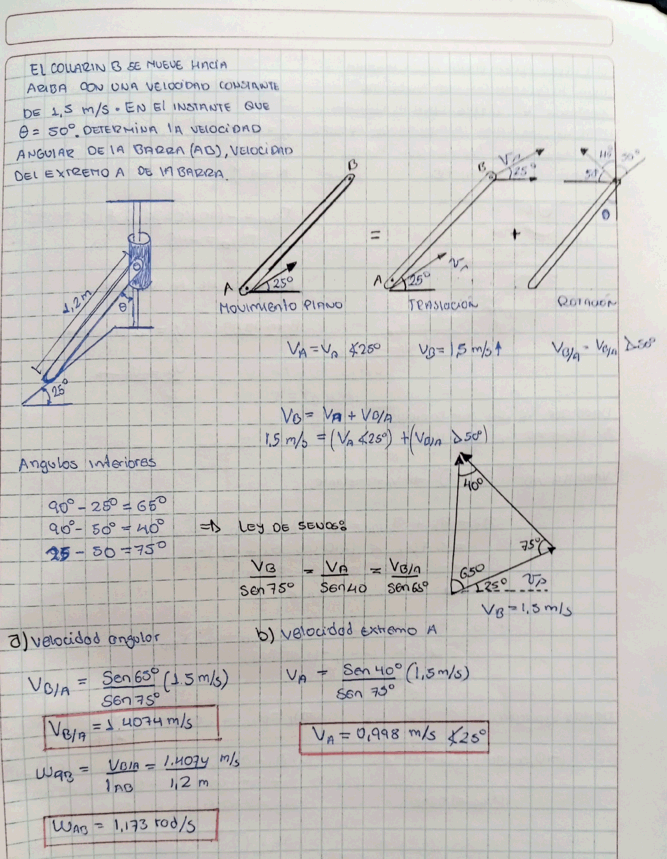 EL COLLARIN B SE MUEVE HACIA
ARIBA CON UNA VELOCIDAD CONSTANTE
DE 1,5 m/s. EN El INSTANTE QUE
θ = 50°. DETERMINA lA VELOCIDAD
ANGULAR DE LA BARRA (AB), VELOCIDAD
DEL EXTREMO A DE lA BARRA.
1,2m
θ
25°
B
A
25°
MOVIMIENTO PlANO
=
B
25°
A
25°
TRASLACIÓN
+
50°
ROTACIÓN
VA = VA ∡25°
VB = 1,5 m/s ↑
VB/A = VB/A ⊿50°
VB = VA + VB/A
1,5 m/s = (VA ∡25°) + (VB/A ⊿50°)
Angulos interiores
90° - 25° = 65°
90° - 50° = 40°
25 - 50 = 75°
⇒ LEY DE SENOS:
VB / Sen 75° = VA / Sen 40 = VB/A / Sen 65°
40°
75°
65°
25°
VA
VB = 1,5 m/s
a) Velocidad angular
b) Velocidad Extremo A
VB/A = Sen 65° / Sen 75° (1.5 m/s)
VB/A = 1.4074 m/s
WAB = VB/A / lAB = 1.4074 m/s / 1,2 m
WAB = 1,173 rad/s
VA = Sen 40° / Sen 75° (1,5 m/s)
VA = 0,998 m/s ∡25°